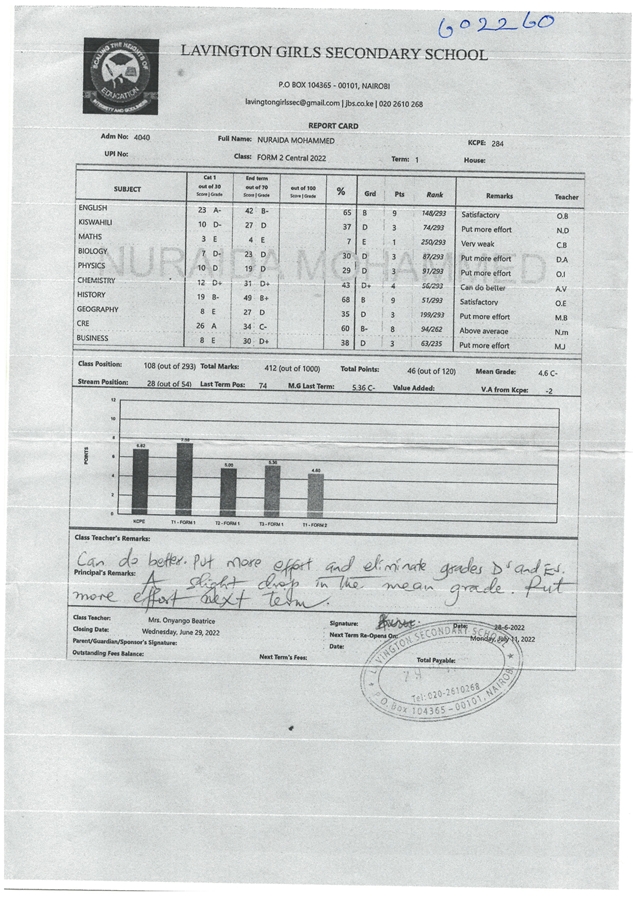 602260
SCALING THE HEIGHTS OF
EDUCATION
LAVINGTON GIRLS SECONDARY SCHOOL
P.O BOX 104365 - 00101, NAIROBI
lavingtongirlssec@gmail.com | jbs.co.ke | 020 2610 268
REPORT CARD
Adm No: 4040 Full Name: NURAIDA MOHAMMED KCPE: 284
UPI No: Class: FORM 2 Central 2022 Term: 1 House:
SUBJECT Cat 1 out of 30 Score | Grade End term out of 70 Score | Grade out of 100 Score | Grade % Grd Pts Rank Remarks Teacher
ENGLISH 23 A- 42 B- 65 B 9 148/293 Satisfactory O.B
KISWAHILI 10 D- 27 D 37 D 3 74/293 Put more effort N.D
MATHS 3 E 4 E 7 E 1 250/293 Very weak C.B
BIOLOGY 7 D- 23 D 30 D 3 87/293 Put more effort D.A
PHYSICS 10 D 19 D 29 D 3 91/293 Put more effort O.I
CHEMISTRY 12 D+ 31 D+ 43 D+ 4 56/293 Can do better A.V
HISTORY 19 B- 49 B+ 68 B 9 51/293 Satisfactory O.E
GEOGRAPHY 8 E 27 D 35 D 3 199/293 Put more effort M.B
CRE 26 A 34 C- 60 B- 8 94/262 Above average N.m
BUSINESS 8 E 30 D+ 38 D 3 63/235 Put more effort M.J
NURAIDA MOHAMMED
Class Position: 108 (out of 293) Total Marks: 412 (out of 1000) Total Points: 46 (out of 120) Mean Grade: 4.6 C-
Stream Position: 28 (out of 54) Last Term Pos: 74 M.G Last Term: 5.36 C- Value Added: V.A from Kcpe: -2
POINTS
12
10
8
6
4
2
0
KCPE T1 - FORM 1 T2 - FORM 1 T3 - FORM 1 T1 - FORM 2
Class Teacher's Remarks:
Can do better. Put more effort and eliminate grades D's and Es.
Principal's Remarks: A slight drop in the mean grade. Put
more effort next term.
Class Teacher: Mrs. Onyango Beatrice Signature: Date: 28-6-2022
Closing Date: Wednesday, June 29, 2022 Next Term Re-Opens On: Monday, July 11, 2022
Parent/Guardian/Sponsor's Signature: Date:
Outstanding Fees Balance: Next Term's Fees: Total Payable:
LAVINGTON SECONDARY SCHOOL
Tel: 020-2610268
P.O. Box 104365 - 00101, NAIROBI